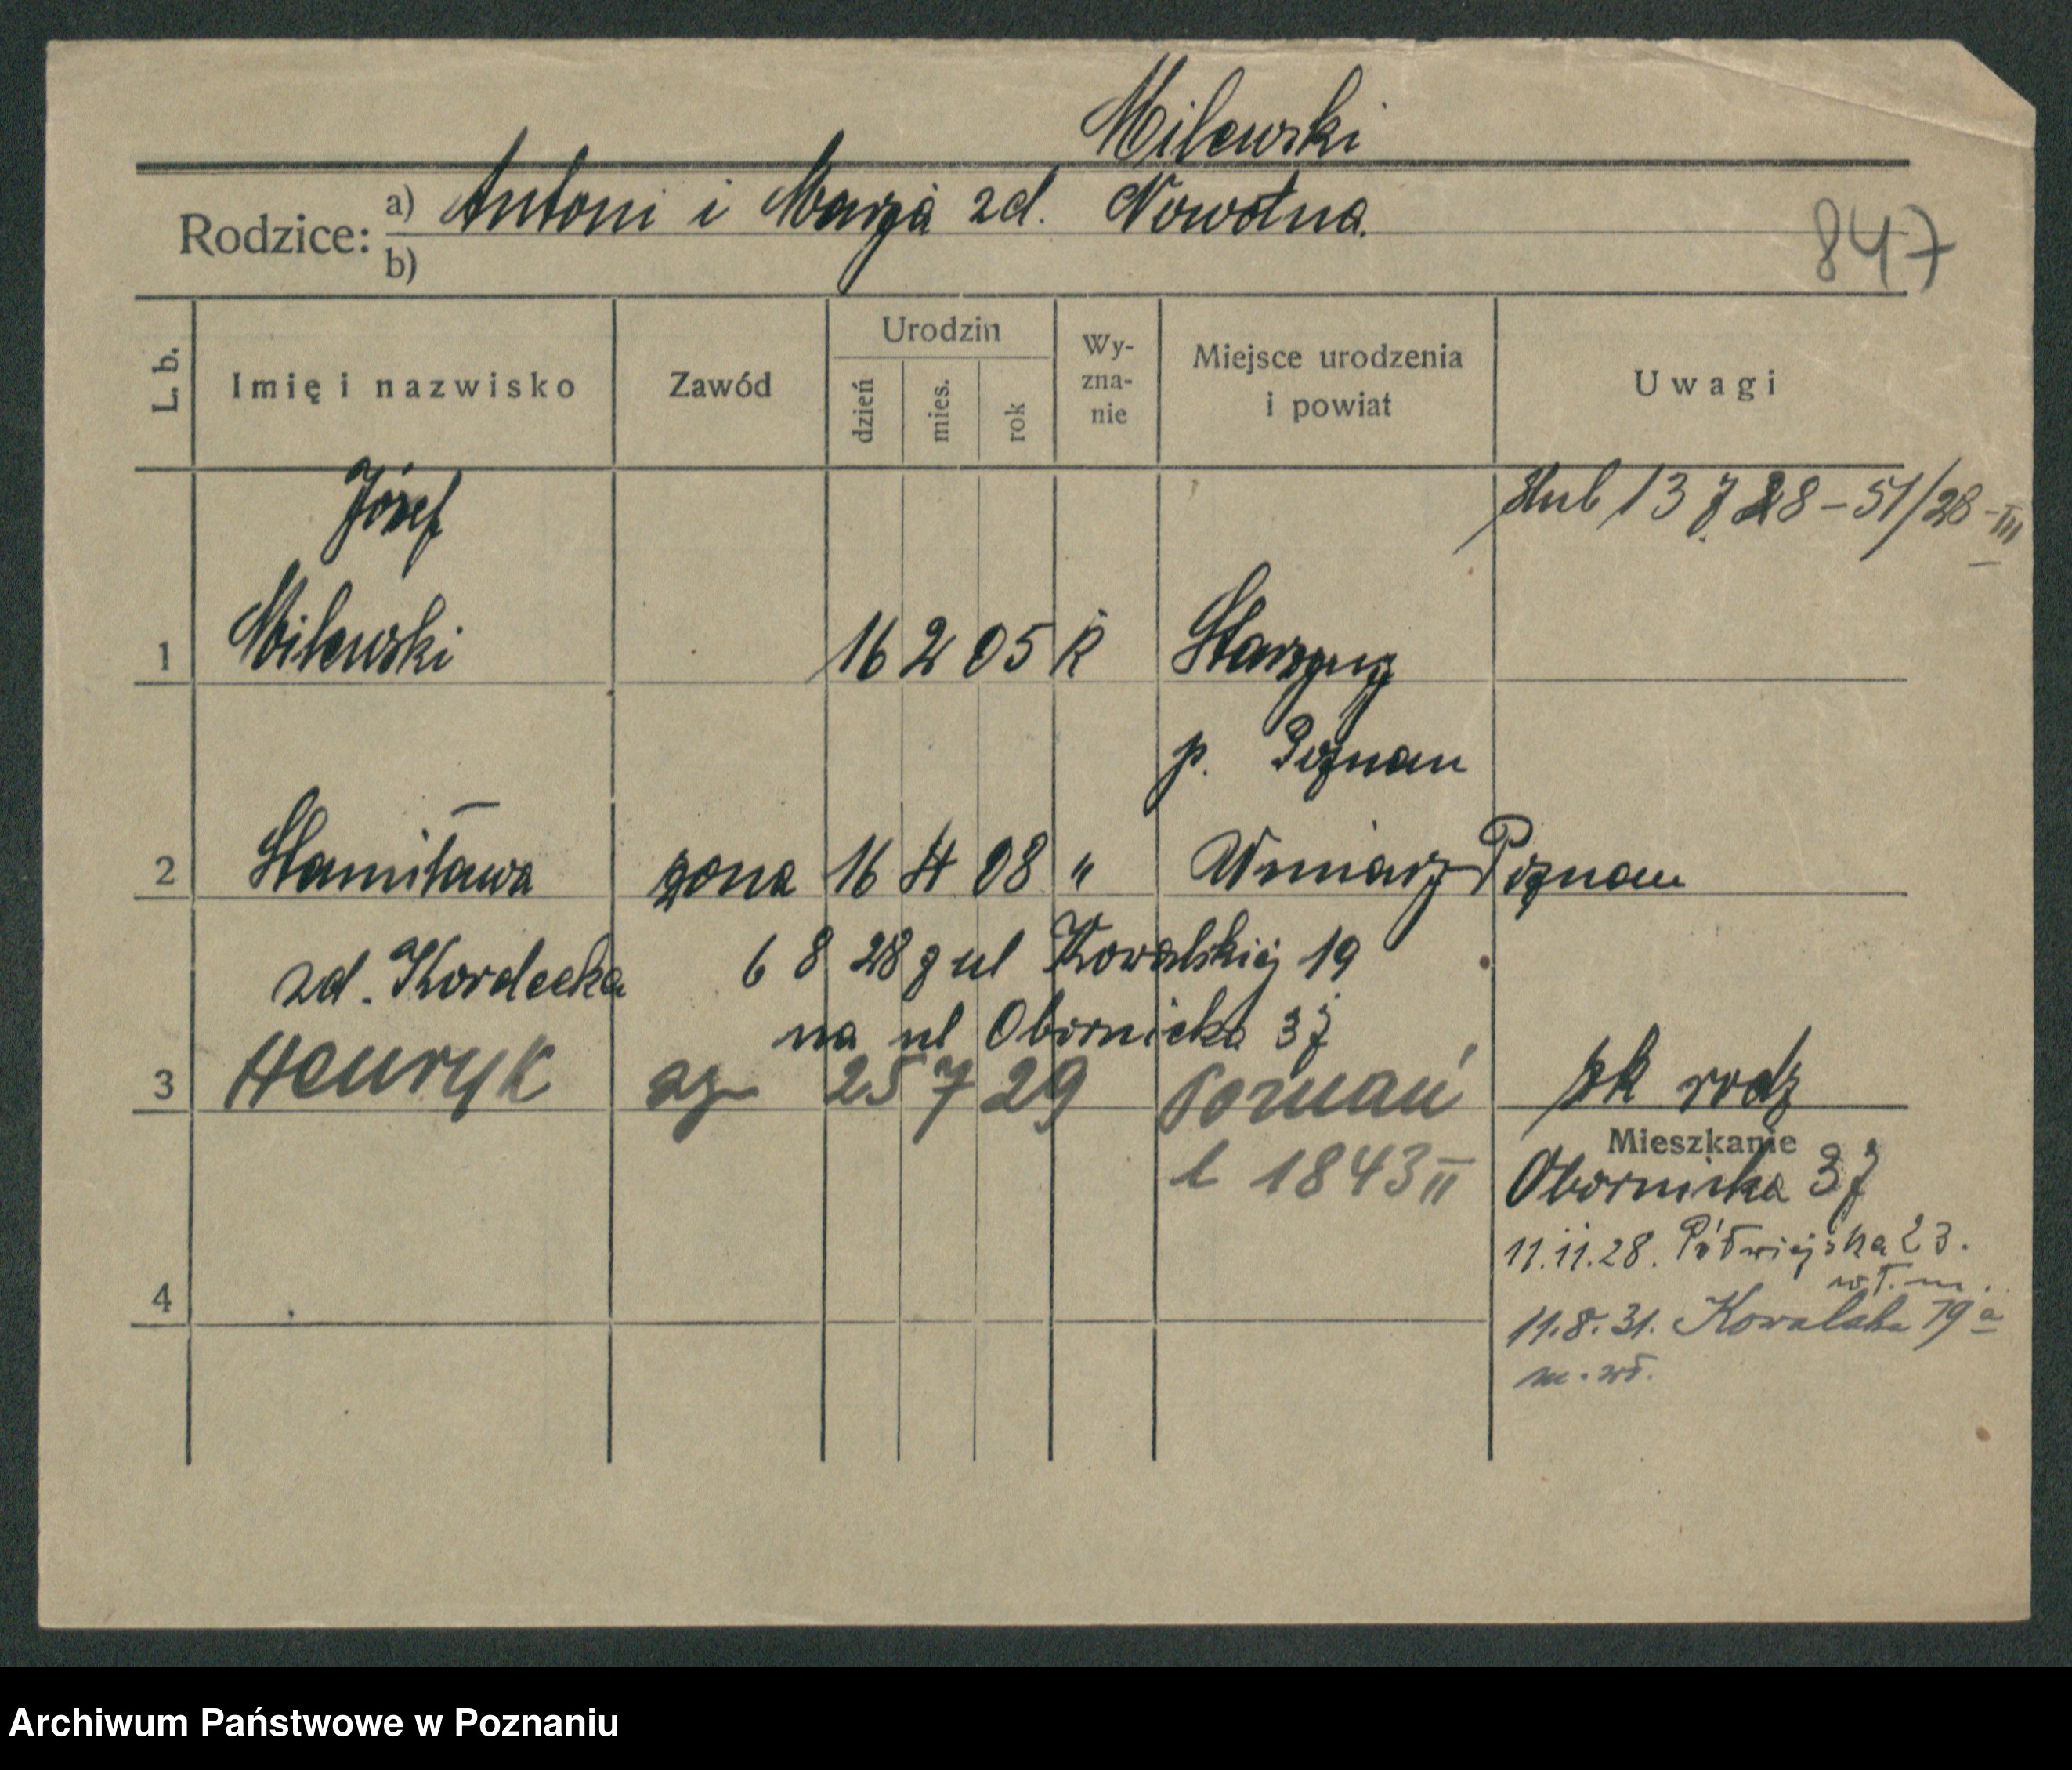 Milewski
Rodzice: a) Antoni i Marja zd. Nowotna
b)
847
L. b.
Imię i nazwisko
Zawód
Urodzin
dzień
mies.
rok
Wy-
zna-
nie
Miejsce urodzenia
i powiat
Uwagi
Józef
ślub 13 7. 28 – 51/28 – III
1 Milewski 16 2 05 R
p. Poznan
2 Stanisława żona 16 4 08 " Winiary Poznan
zd. Kordecka 6 8 28 z ul Kowalskiej 19
na ul Obornicka 37
3 Henryk 25 7 29 Poznań
rodz
l 1843 II
Mieszkanie
Obornicka 37
11.11.28. Półwiejska 23.
wł. m.
4
11.8.31. Kowalska 19 a
m. wł.
Archiwum Państwowe w Poznaniu